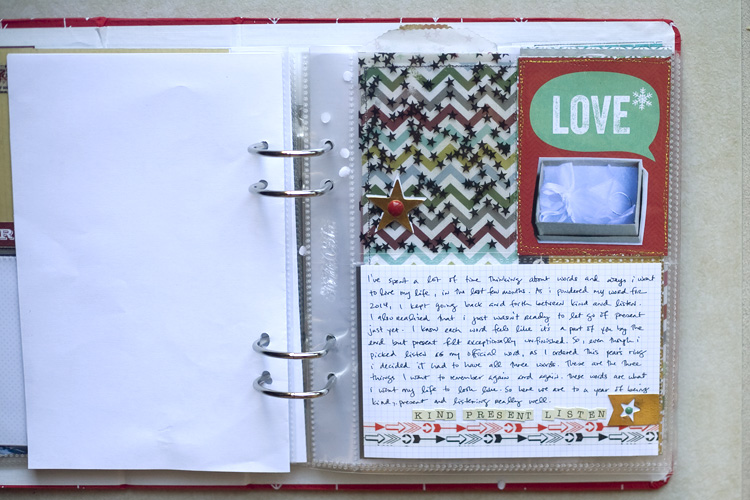 R
LOVE
I've spent a lot of time thinking about words and ways i want
to live my life, in the last few months. As i pondered my word for
2014, I kept going back and forth between kind and listen.
I also realized that i just wasn't ready to let go of present
just yet. I know each word feels like it's a part of you by the
end but present felt exceptionally unfinished. So, even though i
picked listen as my official word, as I ordered this year's ring
i decided it had to have all three words. These are the three
things I want to remember again and again. these words are what
i want my life to look like. So here we are to a year of being
kind, present and listening really well.
KIND PRESENT LISTEN